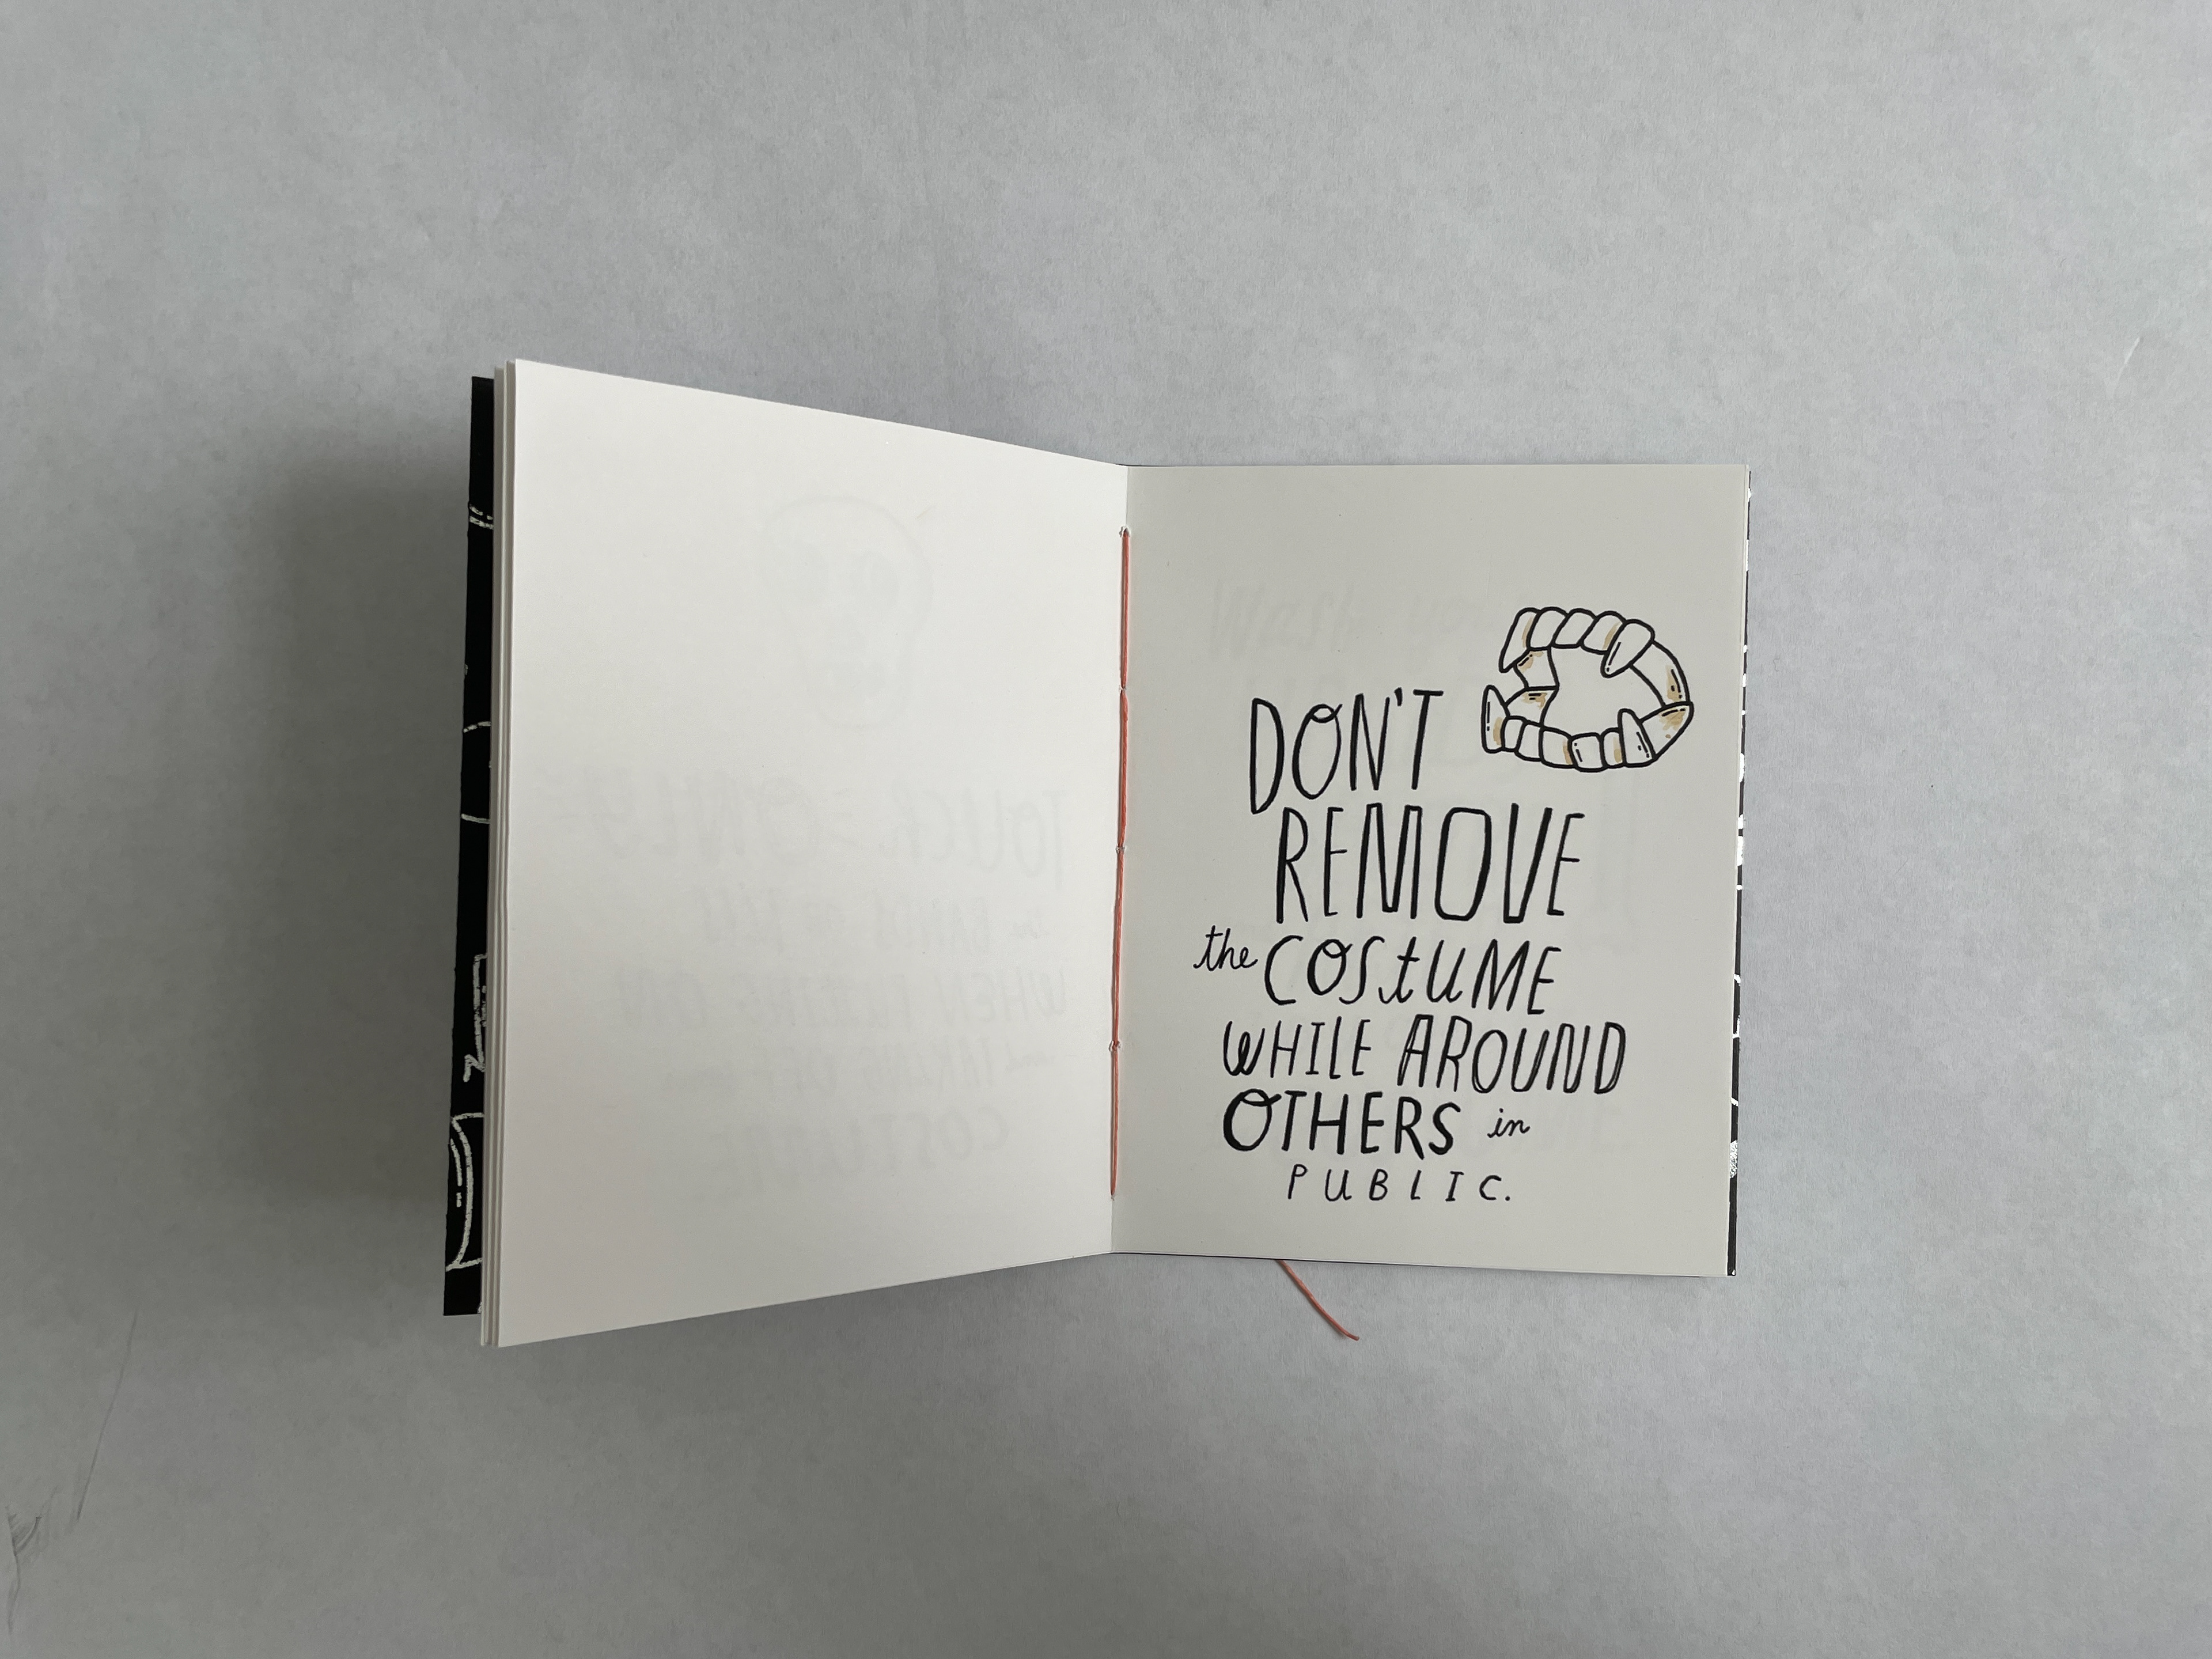 DON'T
REMOVE
the COStUME
WHILE AROUND
OTHERS in
PUBLIC.